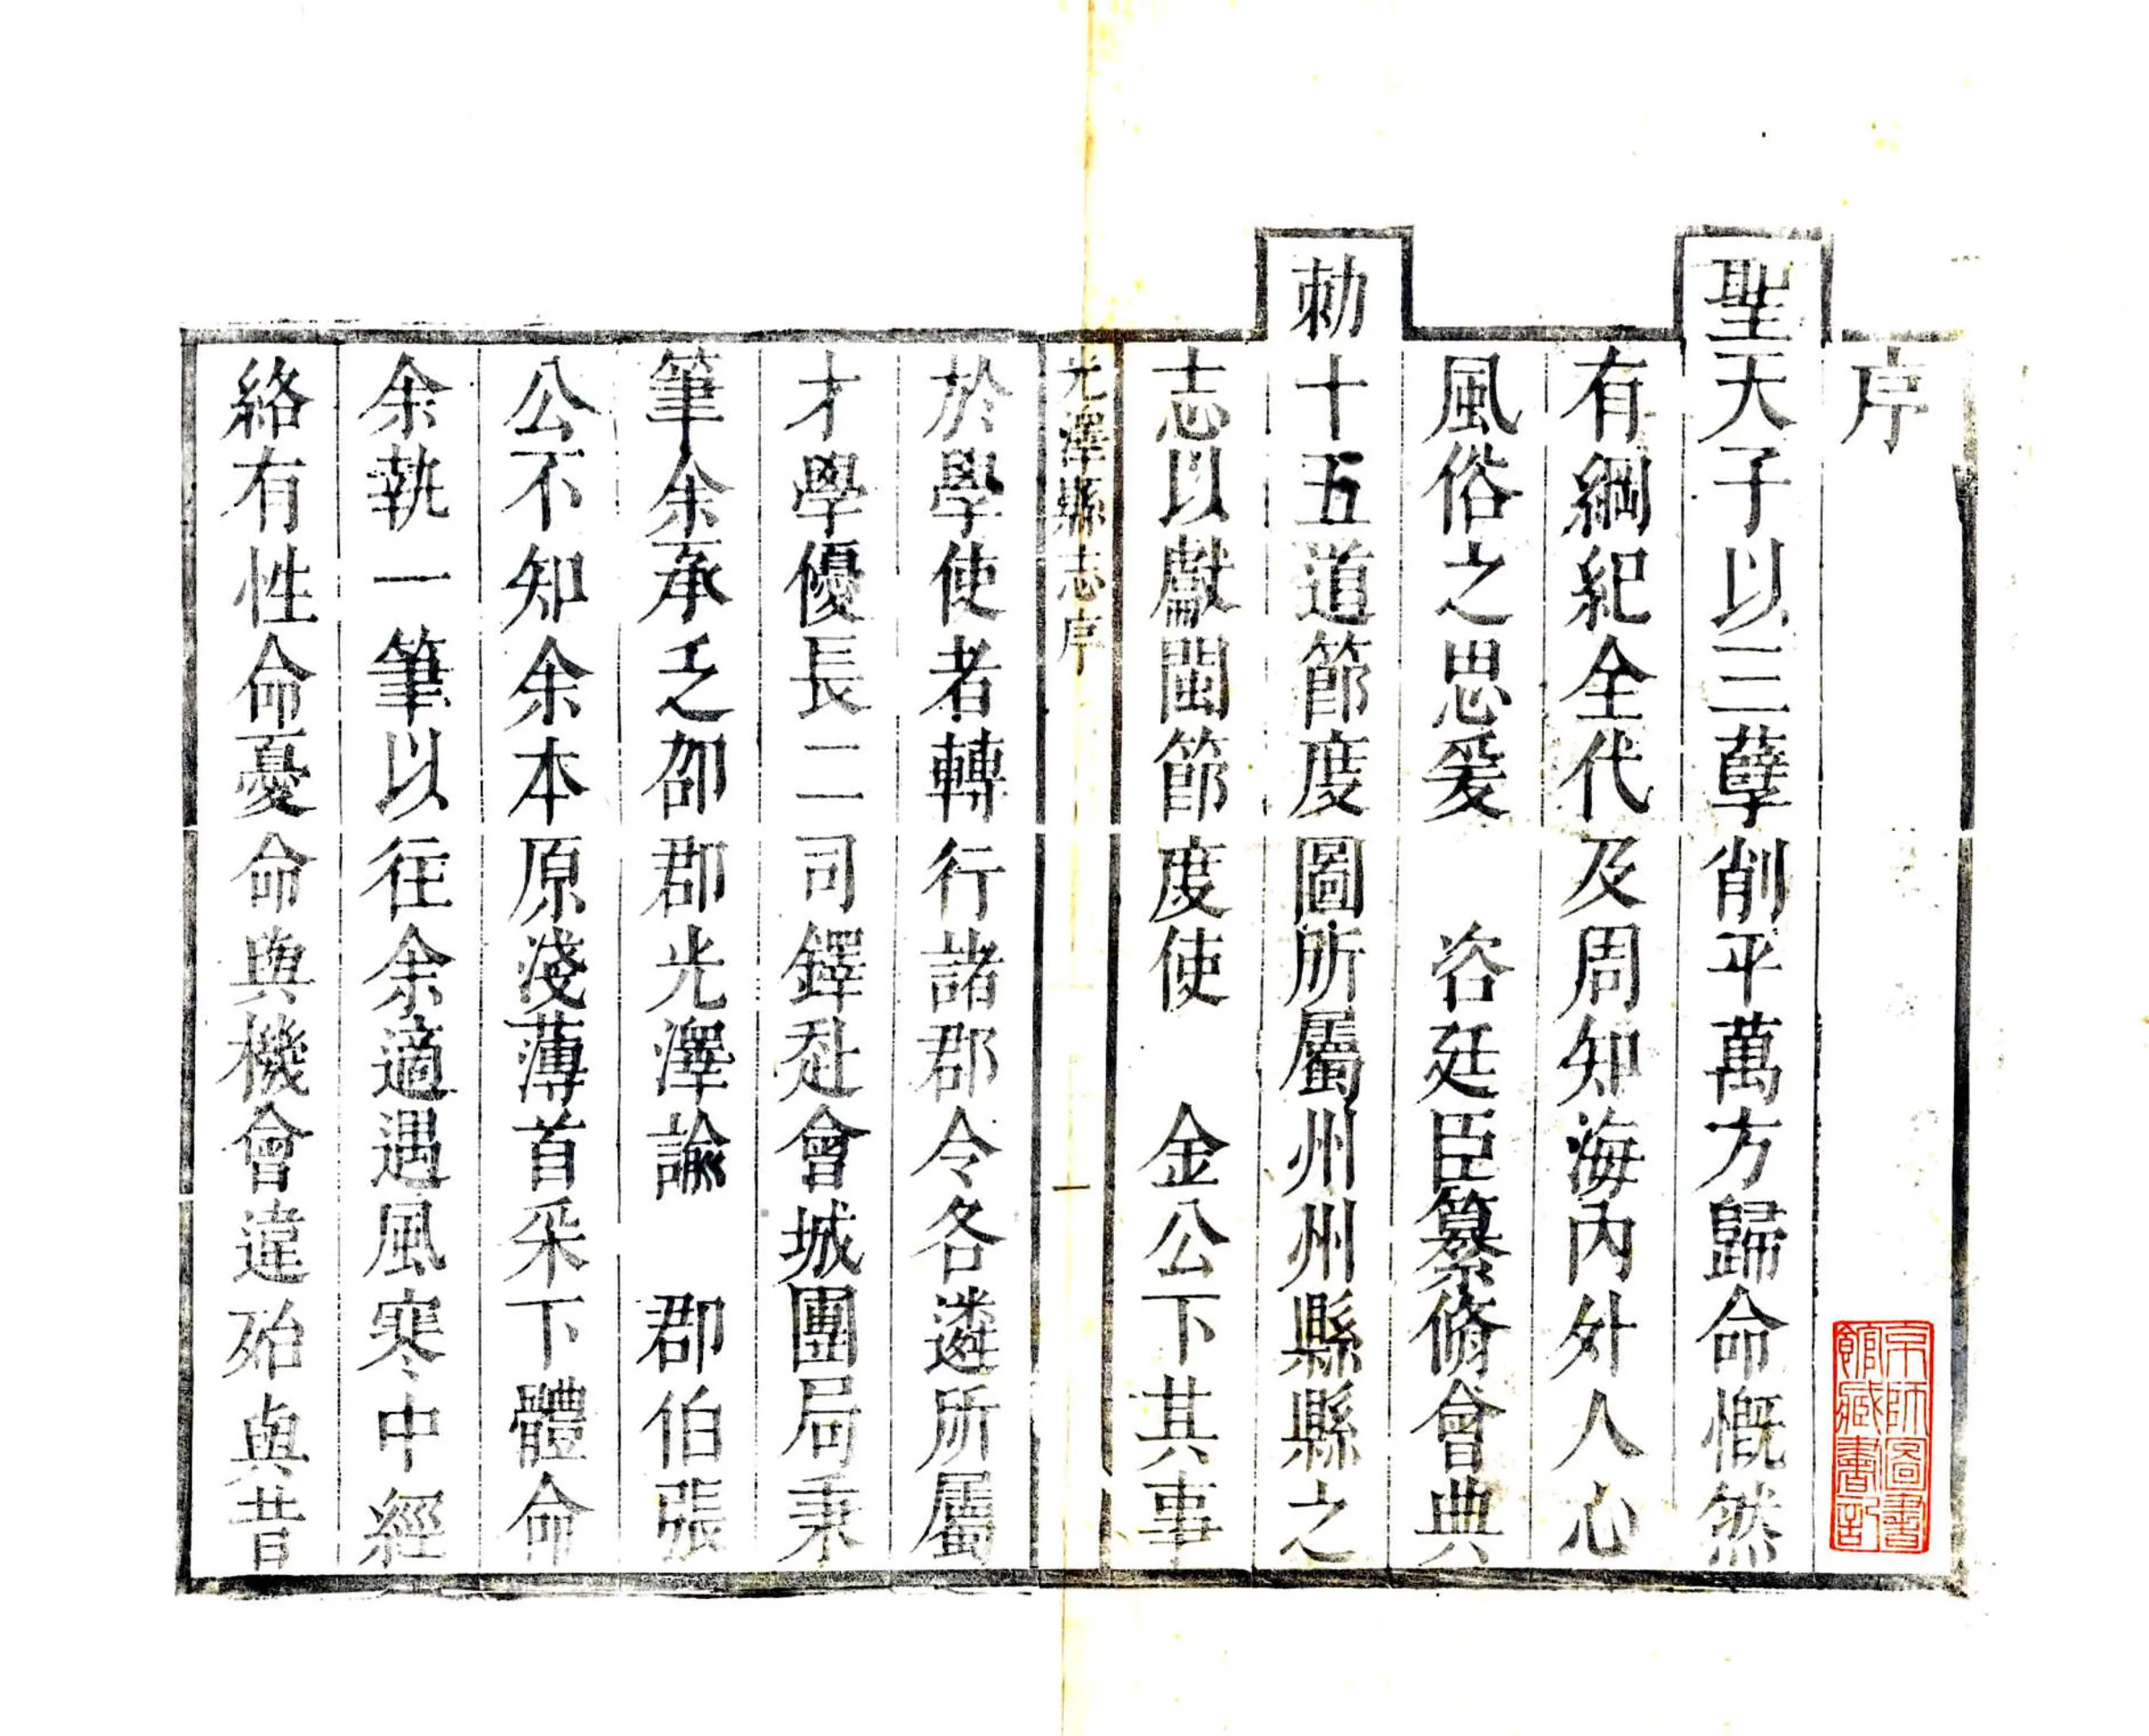 序
聖天子以三孽削平萬方歸命慨然
有綱紀全代及周知海內外人心
風俗之思爰 咨廷臣纂脩會典
勅十五道節度圖所屬州州縣縣之
志以獻閩節度使 金公下其事
光澤縣志序
一
於學使者轉行諸郡令各遴所屬
才學優長二司鐸赴會城團局秉
筆余承乏邵郡光澤諭 郡伯張
公不知余本原淺薄首采下體命
余執一筆以往余適遇風寒中經
絡有性命憂命與機會違殆與昔
京師圖書
館藏書記